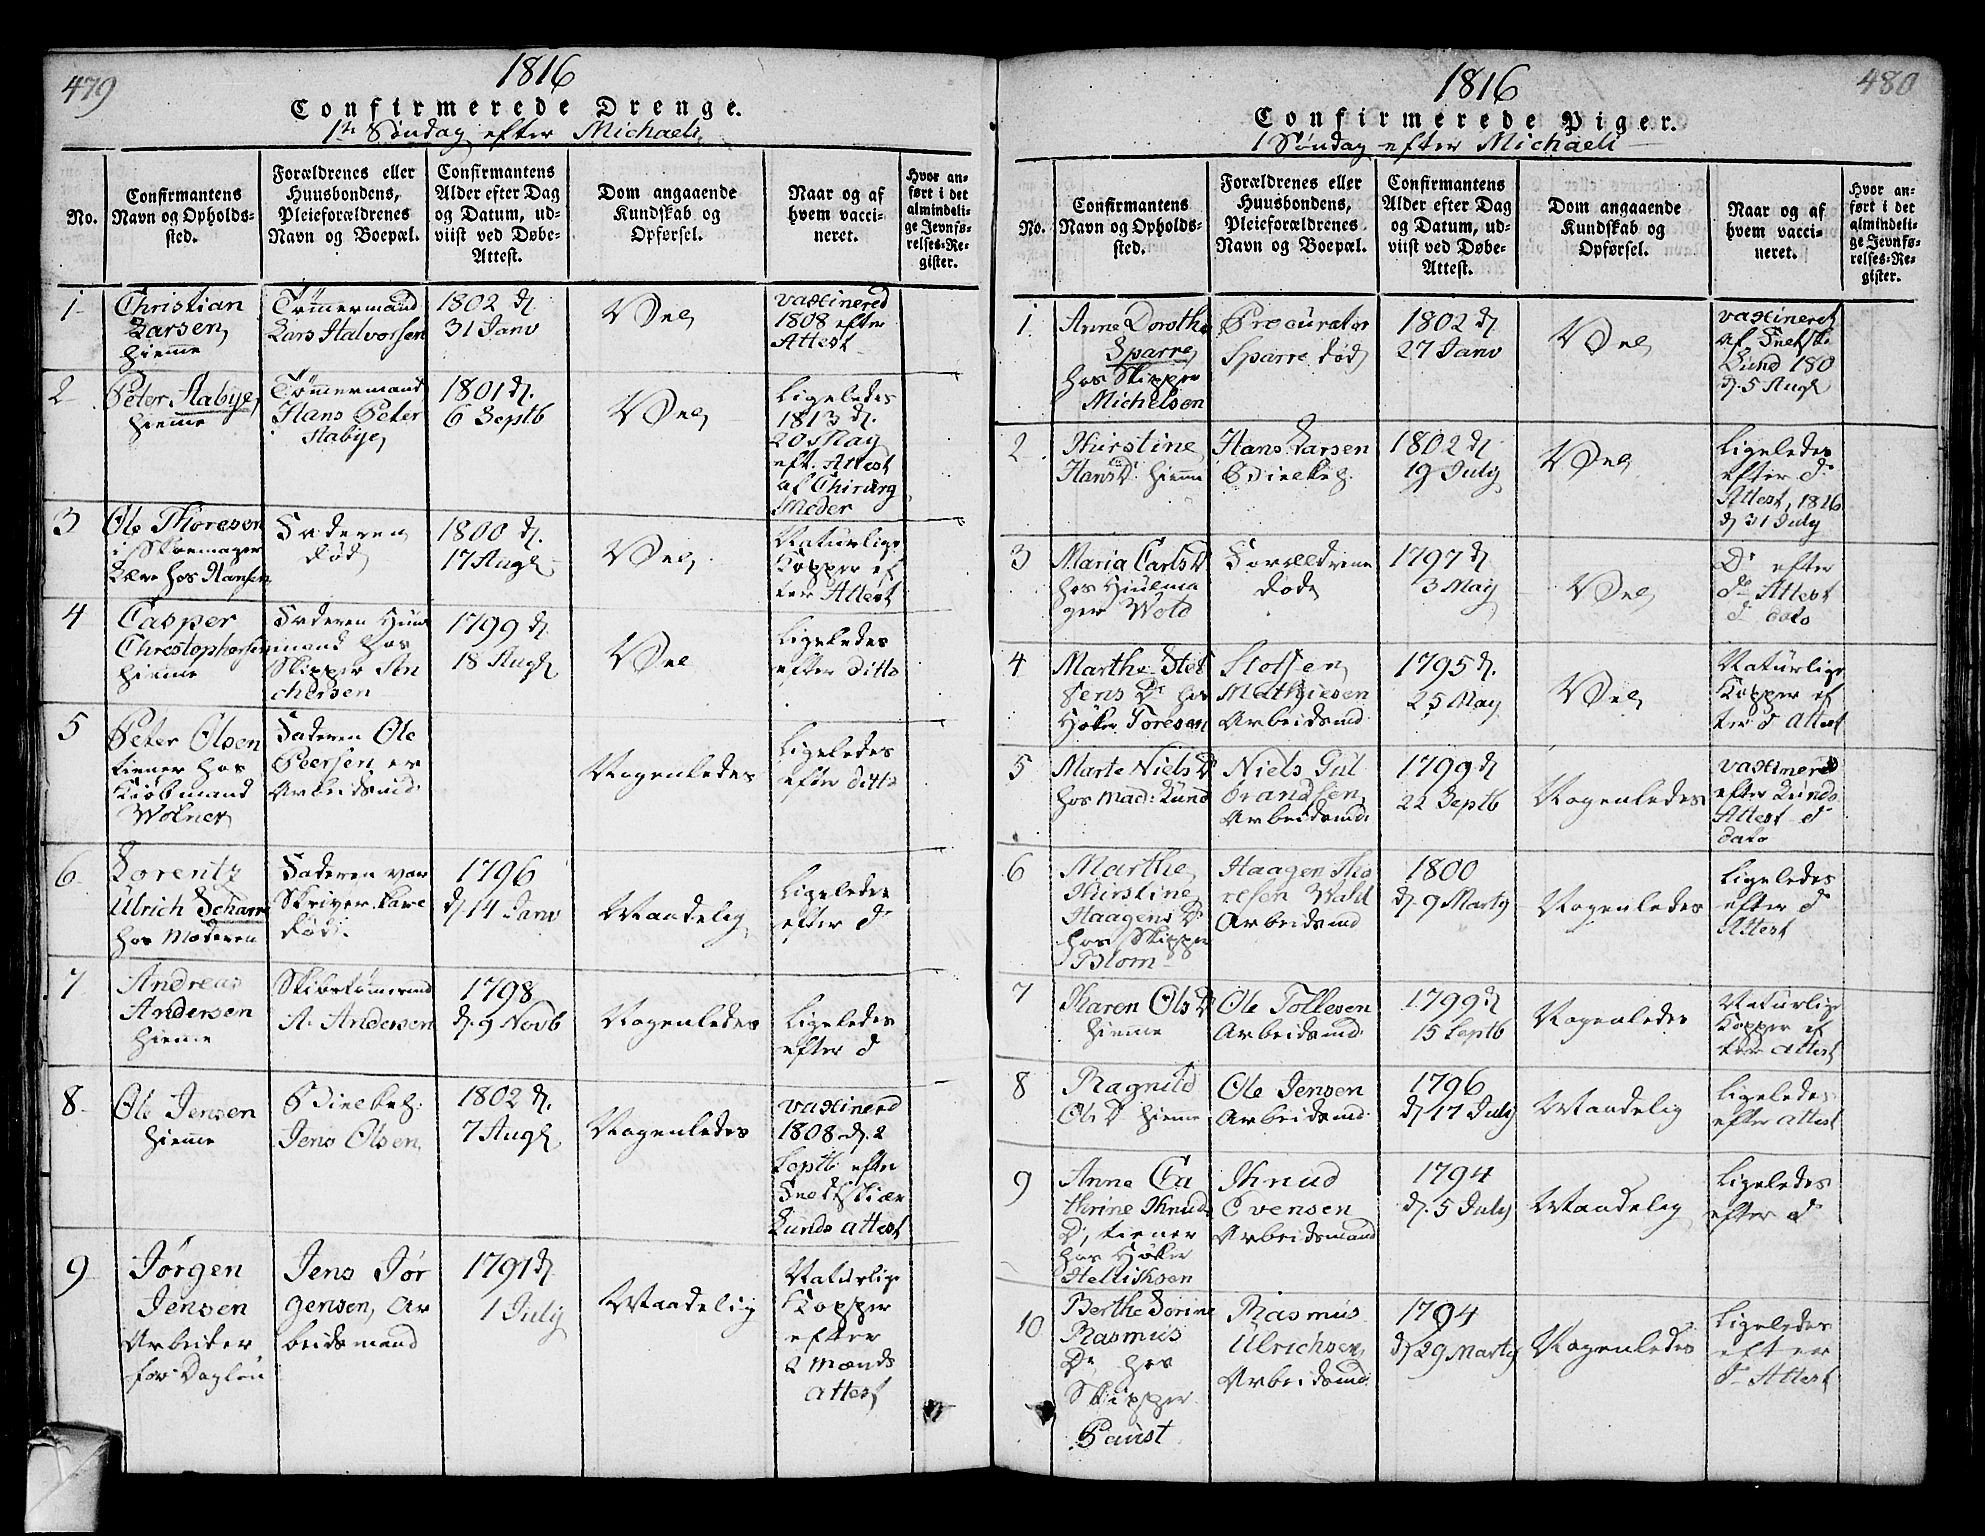 479
1816
Confirmerede Drenge.
1te Søndag efter Michaeli
No.
Confirmantens
Navn og Opholds-
sted.
Forældrenes eller
Huusbondens,
Pleieforældrenes
Navn og Boepæl.
Confirmantens
Alder efter Dag
og Datum, ud-
viist ved Døbe-
Attest.
Dom angaaende
Kundskab og
Opførsel.
Naar og af
hvem vacci-
neret.
Hvor an-
ført i det
almindeli-
ge Jevnfø-
relses-Re-
gister.
1
Christian
Larsen
hiemme
Tømmermand
Lars Halvorsen
1802 d.
31 Janv
Vel
vaxinered
1808 efter
Attest
2
Peter Stabye,
hiemme
Tømmermand
Hans Peter
Stabye
1801 d.
6 Septb
Vel
Ligeledes
1813 d.
20 May
eft. Attest
af Chirurg
Meder
3
Ole Thoresen
i Skomager
Lære hos Hansen
Faderen
død
1800 d.
17 Augt
Vel
Naturlige
Kopper ef
ter Attest
4
Casper
Chrestophersen
hiemme
Faderen Huus
mand hos
Skipper
chersen
1799 d.
18 Augt
Vel
Ligeledes
efter ditto
5
Peter Olsen
tiener hos
Kiøbmand
Wølner
Faderen Ole
Peersen er
Arbeidsmd.
Nogenledes
Ligeledes
efter ditto
6
Lorentz
Ulrich Scharre
hos Moderen
Faderen var
Skriver Kare
død
1796
d. 14 Janv
Maadelig
Ligeledes
efter d
7
Andreas
Andersen
hiemme
Skibstømermd
A. Andersen
1798
d. 9 Novb
Nogenledes
Ligeledes
efter d
8
Ole Jensen
hiemme
Jens Olsen
1802 d.
7 Augt
Nogenledes
vaxinered
1808 d. 2
Septb efter
Lunds attest
9
Jørgen
Jensen
Arbeider
for Dagløn
Jens Jør
gensen, Ar
beidsmand
1791 d.
1 July
Maadelig
Naturlige
Kopper
efter
2 Mænds
attest
480
1816
Confirmerede Piger.
1 Søndag efter Michaeli
No.
Confirmantens
Navn og Opholds-
sted.
Forældrenes eller
Huusbondens,
Pleieforældrenes
Navn og Boepæl.
Confirmantens
Alder efter Dag
og Datum, ud-
viist ved Døbe-
Attest.
Dom angaaende
Kundskab og
Opførsel.
Naar og af
hvem vacci-
neret.
Hvor an-
ført i det
almindeli-
ge Jevnfø-
relses-Re-
gister.
1
Anne Dorothe
Sparre,
hos Skipper
Michelsen
Procurator
Sparre død
1802 d.
27 Janv
Vel
vaxineret
af
Lund 180
d. 5 Augt
2
Kirstine
Hans D. hiemme
Hans Larsen
1802 d.
19 July
Vel
Ligeledes
efter d
Attest, 1816
d 31 July
3
Maria Carls D
hos Hiulma
ger Wold
Forældrene
døde
1797 d
3 May
Vel
D efter
do Attest
d dato
4
Marthe Stef
fens D hos
Høker Toresen
Stoffen
Mathiesen
Arbeidsmd
1795 d.
25 May
Vel
Naturlige
Kopper ef
ter d attest
5
Marte Niels D
hos Mad: Lund
Niels Gul
brandsen
Arbeidsmd:
1799 d
22 Septb
Nogenledes
vaxinered
efter Lunds
Attest d
dato
6
Marthe
Kirstine
Haagens D
hos Skipper
Blom
Haagen Tho
resen Wald
Arbeidsmd
1800
d. 9 Marty
Nogenledes
Ligeledes
efter d
Attest
7
Karen Ols D
hiemme
Ole Tollesen
Arbeidsmd.
1799 d
15 Septb
Nogenledes
Naturlige
Kopper ef
ter attest
8
Ragnild
Ols D hiemme
Ole Jensen
Arbeidsmd
1796
d. 17 July
Maadelig
Ligeledes
efter attest
9
Anne Ca
thrine Knuds
D, tiener
hos Høker
Hellichsen
Knud
Evensen
Arbeidsmand
1794
d. 5 July
Maadelig
Ligeledes
efter d
10
Berthe Sørine
Rasmus
D, hos
Skipper
Paust
Rasmus
Ulrichsen
Arbeidsmd.
1794
d. 29 Marty
Nogenledes
Ligeledes
efter
d Attest